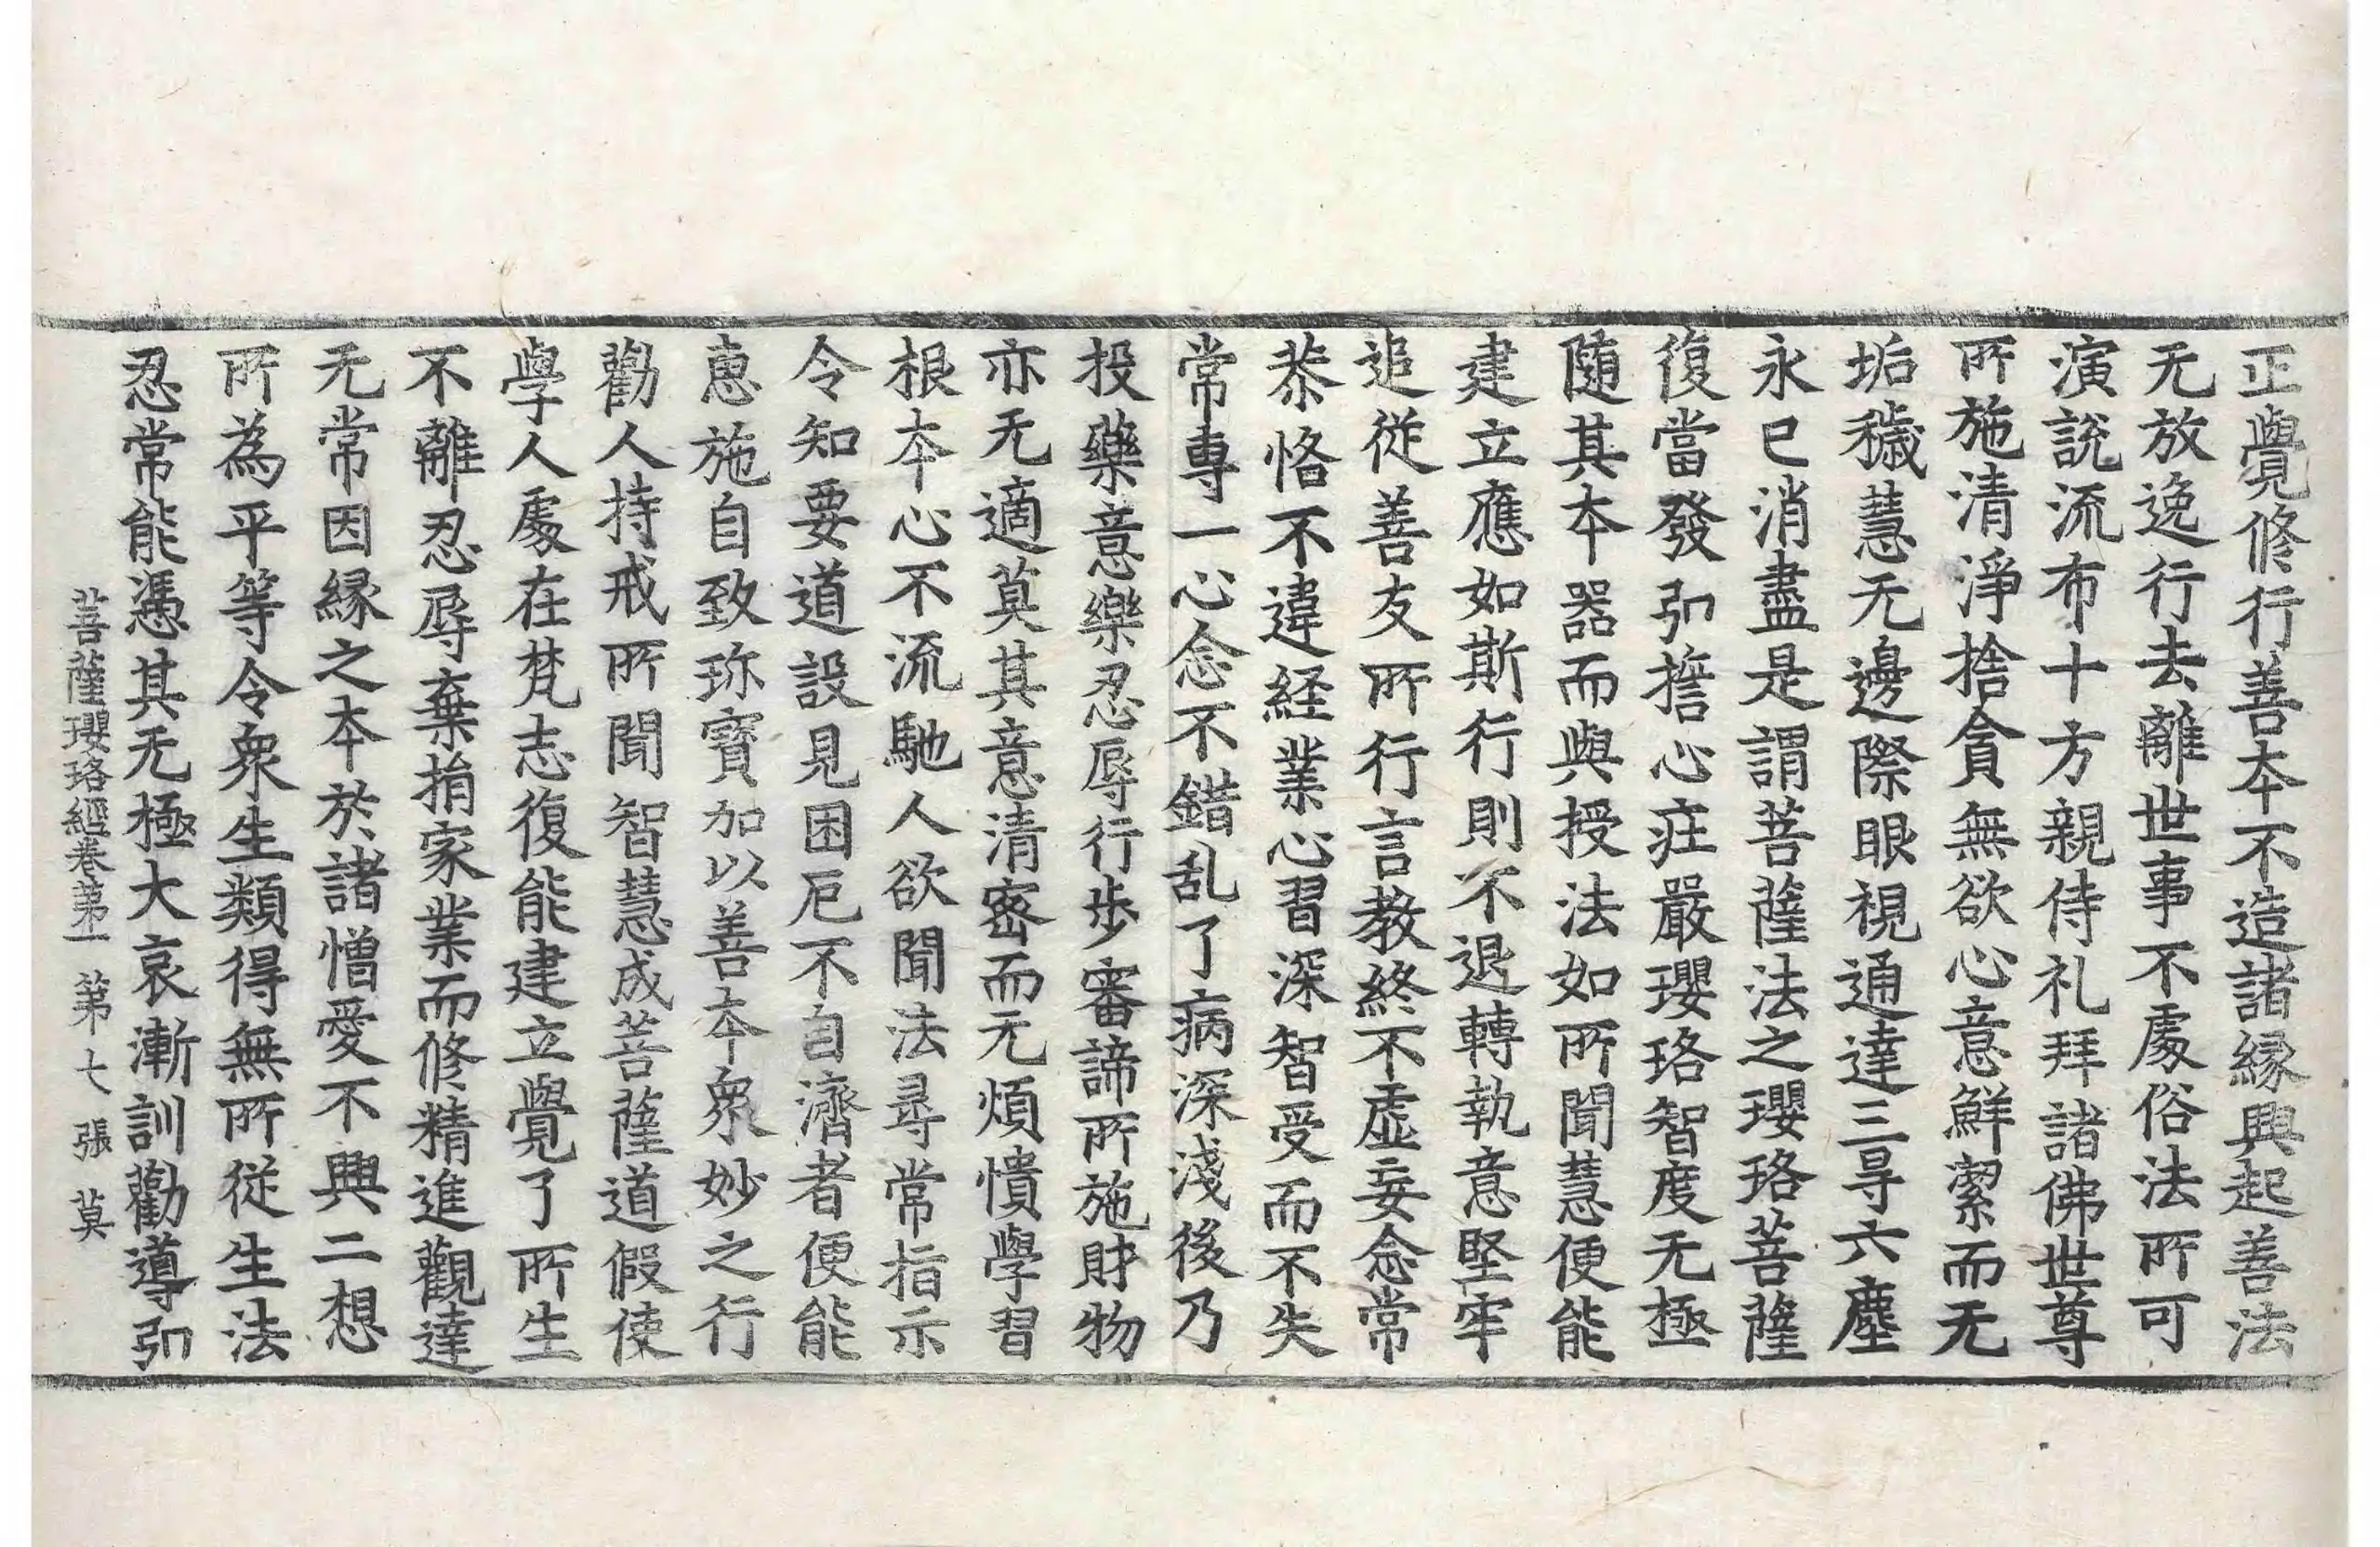 正覺修行善本不造諸縁興起善法
无放逸行去離世事不處俗法所可
演說流布十方親侍礼拜諸佛世尊
所施清淨捨貪無欲心意鮮潔而无
垢穢慧无邊際眼視通達三㝵六塵
永已消盡是謂菩薩法之瓔珞菩薩
復當發弘擔心庄嚴瓔珞智度无極
隨其本器而與授法如所聞慧便能
建立應如斯行則不退轉執意堅牢
追從善友所行言教終不虛妄念常
恭恪不違経業心習深智受而不失
常專一心念不錯乱了病深淺後乃
投藥意樂忍辱行步審諦所施財物
亦无適莫其意清密而无煩憒學習
根本心不流馳人欲聞法尋常指示
令知要道設見困厄不自濟者便能
惠施自致珎寶加以善本衆妙之行
勸人持戒所聞智慧成菩薩道假使
學人處在梵志復能建立覺了所生
不離忍辱棄捐家業而修精進觀達
无常因縁之本於諸憎愛不興二想
所為平等令衆生類得無所從生法
忍常能憑其无極大哀漸訓勸導弘
菩薩瓔珞經卷第一 第七張 莫